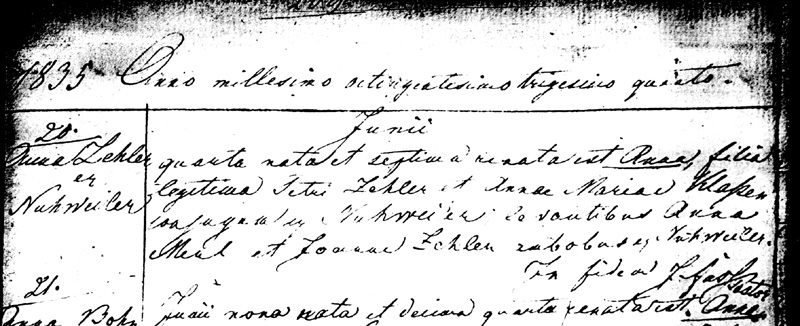 1835 Anno millesimo octingentesimo trigesimo quinto.
Junii
20.
Anna Zehler
ex
Nuhweiler
quarta nata et septima renata est Anna, filia
legitima Petri Zehler et Annae Mariae Klassen
conjugum ex Nuhweiler levantibus Anna
Meul et Joanne Zehler ambobus ex Nuhweiler.
In fidem
21.
Anna Bohn
Junii nona nata et decima quarta renata est Anna